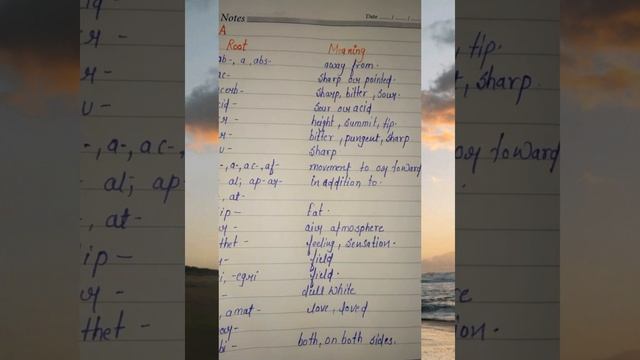 Notes Date ..../..../....
A
Root Meaning
ab-, a, abs- away from.
ac- sharp or pointed.
cerb- sharp, bitter, sour.
cid- sour or acid
height, summit, tip.
bitter, pungent, sharp
u- sharp
-, a-, ac-, af- movement to or toward
al; ap- ar- in addition to.
, at-
ip- Fat.
air atmosphere
thet- feeling, sensation.
field
i, -egri field.
dull white
, amat- love, loved
bi- both, on both sides.
tip.
t, sharp
u -
-, a-, ac-, or toward
- al; ap-
, at-
ip -
thet - ion.